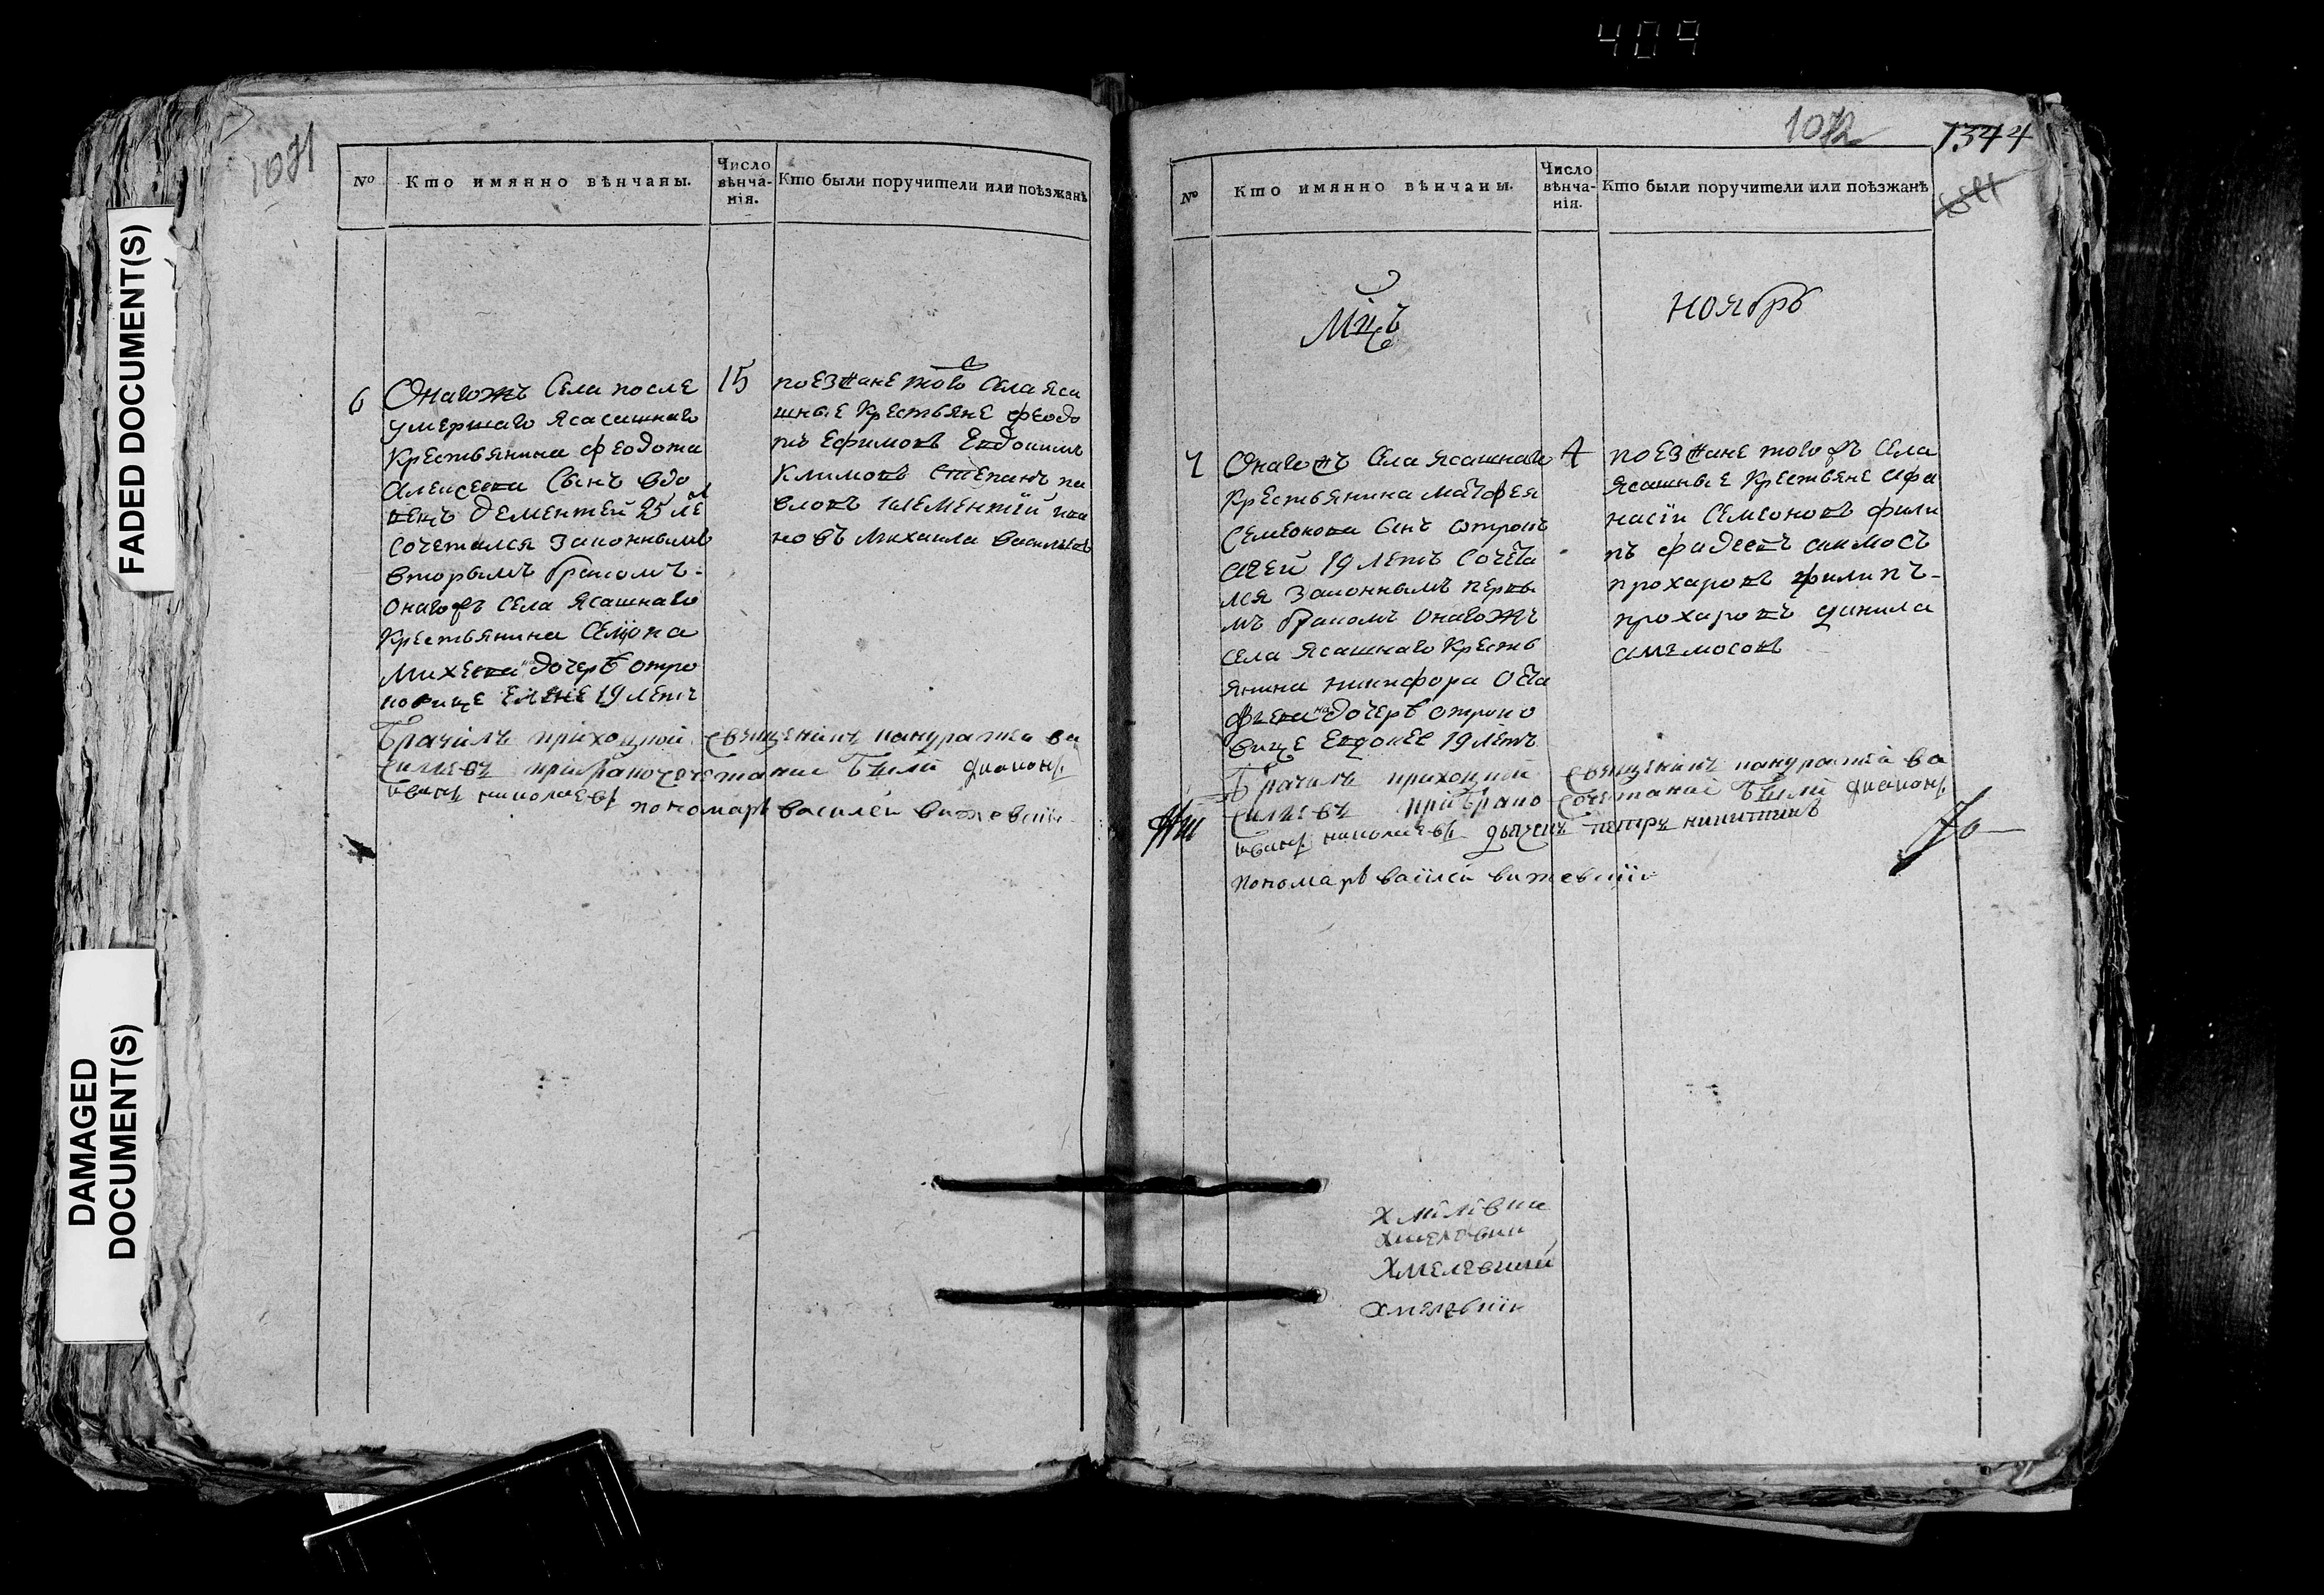 409
FADED DOCUMENT(S)
DAMAGED
DOCUMENT(S)
1071
№
Кто имянно вѣнчаны.
Число
вѣнча-
нія.
Кто были поручители или поѣзжанѣ
6
Онагожъ Села после
умершаго Ясашнаго
Крестьянина феодота
Алексеева Сынъ вдо
вецъ дементей 25 ле
сочетался законнымъ
вторымъ бракомъ
онагожъ села Ясашнаго
Крестьянина Семиона
Михеева дочерь отро
ковице Елене 19 летъ
15
поезжане того Села яса
шные крестьяне феодо
тъ Ефимовъ Евдокимъ
Климовъ Степанъ па
вловъ Клементий ива
новъ михаила васильевъ
Брачилъ приходной священникъ панкратей ва
сильевъ при бракосочетание были диаконъ
иванъ николаевъ пономарь василеи
1072
1344
№
Кто имянно вѣнчаны.
Число
вѣнча-
нія.
Кто были поручители или поѣзжанѣ
Мцъ
ноябрь
7
Онагожъ Села Ясашнаго
крестьянина матфея
Семионова Сынъ отрокъ
19 летъ Сочета
лся законнымъ первы
мъ бракомъ онагожъ
села Ясашнаго Кресть
янина никифора Оста
фьева дочерь отроко
вице Евдокее 19 летъ
4
поезжане тогожъ Села
Ясашные Крестьяне Афа
насіи Семионовъ фили
пъ фадеевъ
прохаровъ филипъ
прохаровъ данила
Брачилъ приходной священникъ панкратей ва
сильевъ при брако Сочетание были диаконъ
иванъ николаевъ дьячекъ петръ никитинъ
пономарь василеи
Хмелевски
Хмелевски
Хмелевский
Хмелевскии